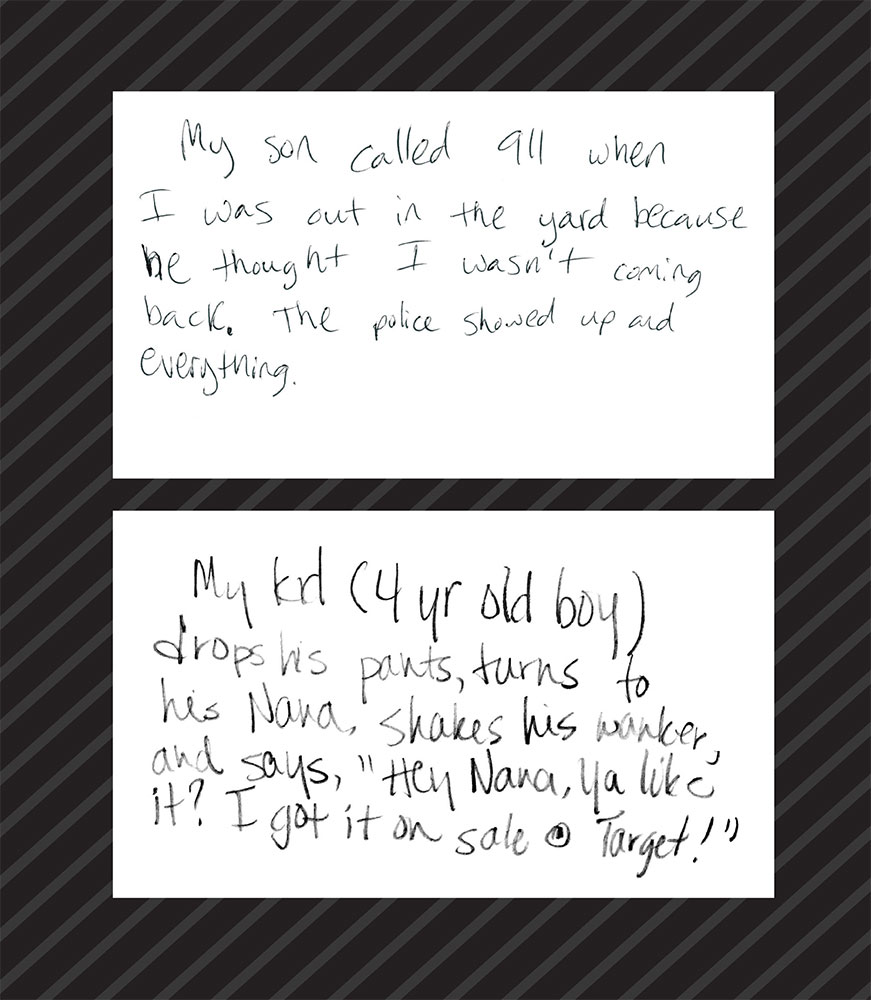 My son called 911 when
I was out in the yard because
he thought I wasn't coming
back. The police showed up and
everything.
My kid (4 yr old boy)
drops his pants, turns to
his Nana, shakes his wanker,
and says, "Hey Nana, ya like
it? I got it on sale @ Target!"